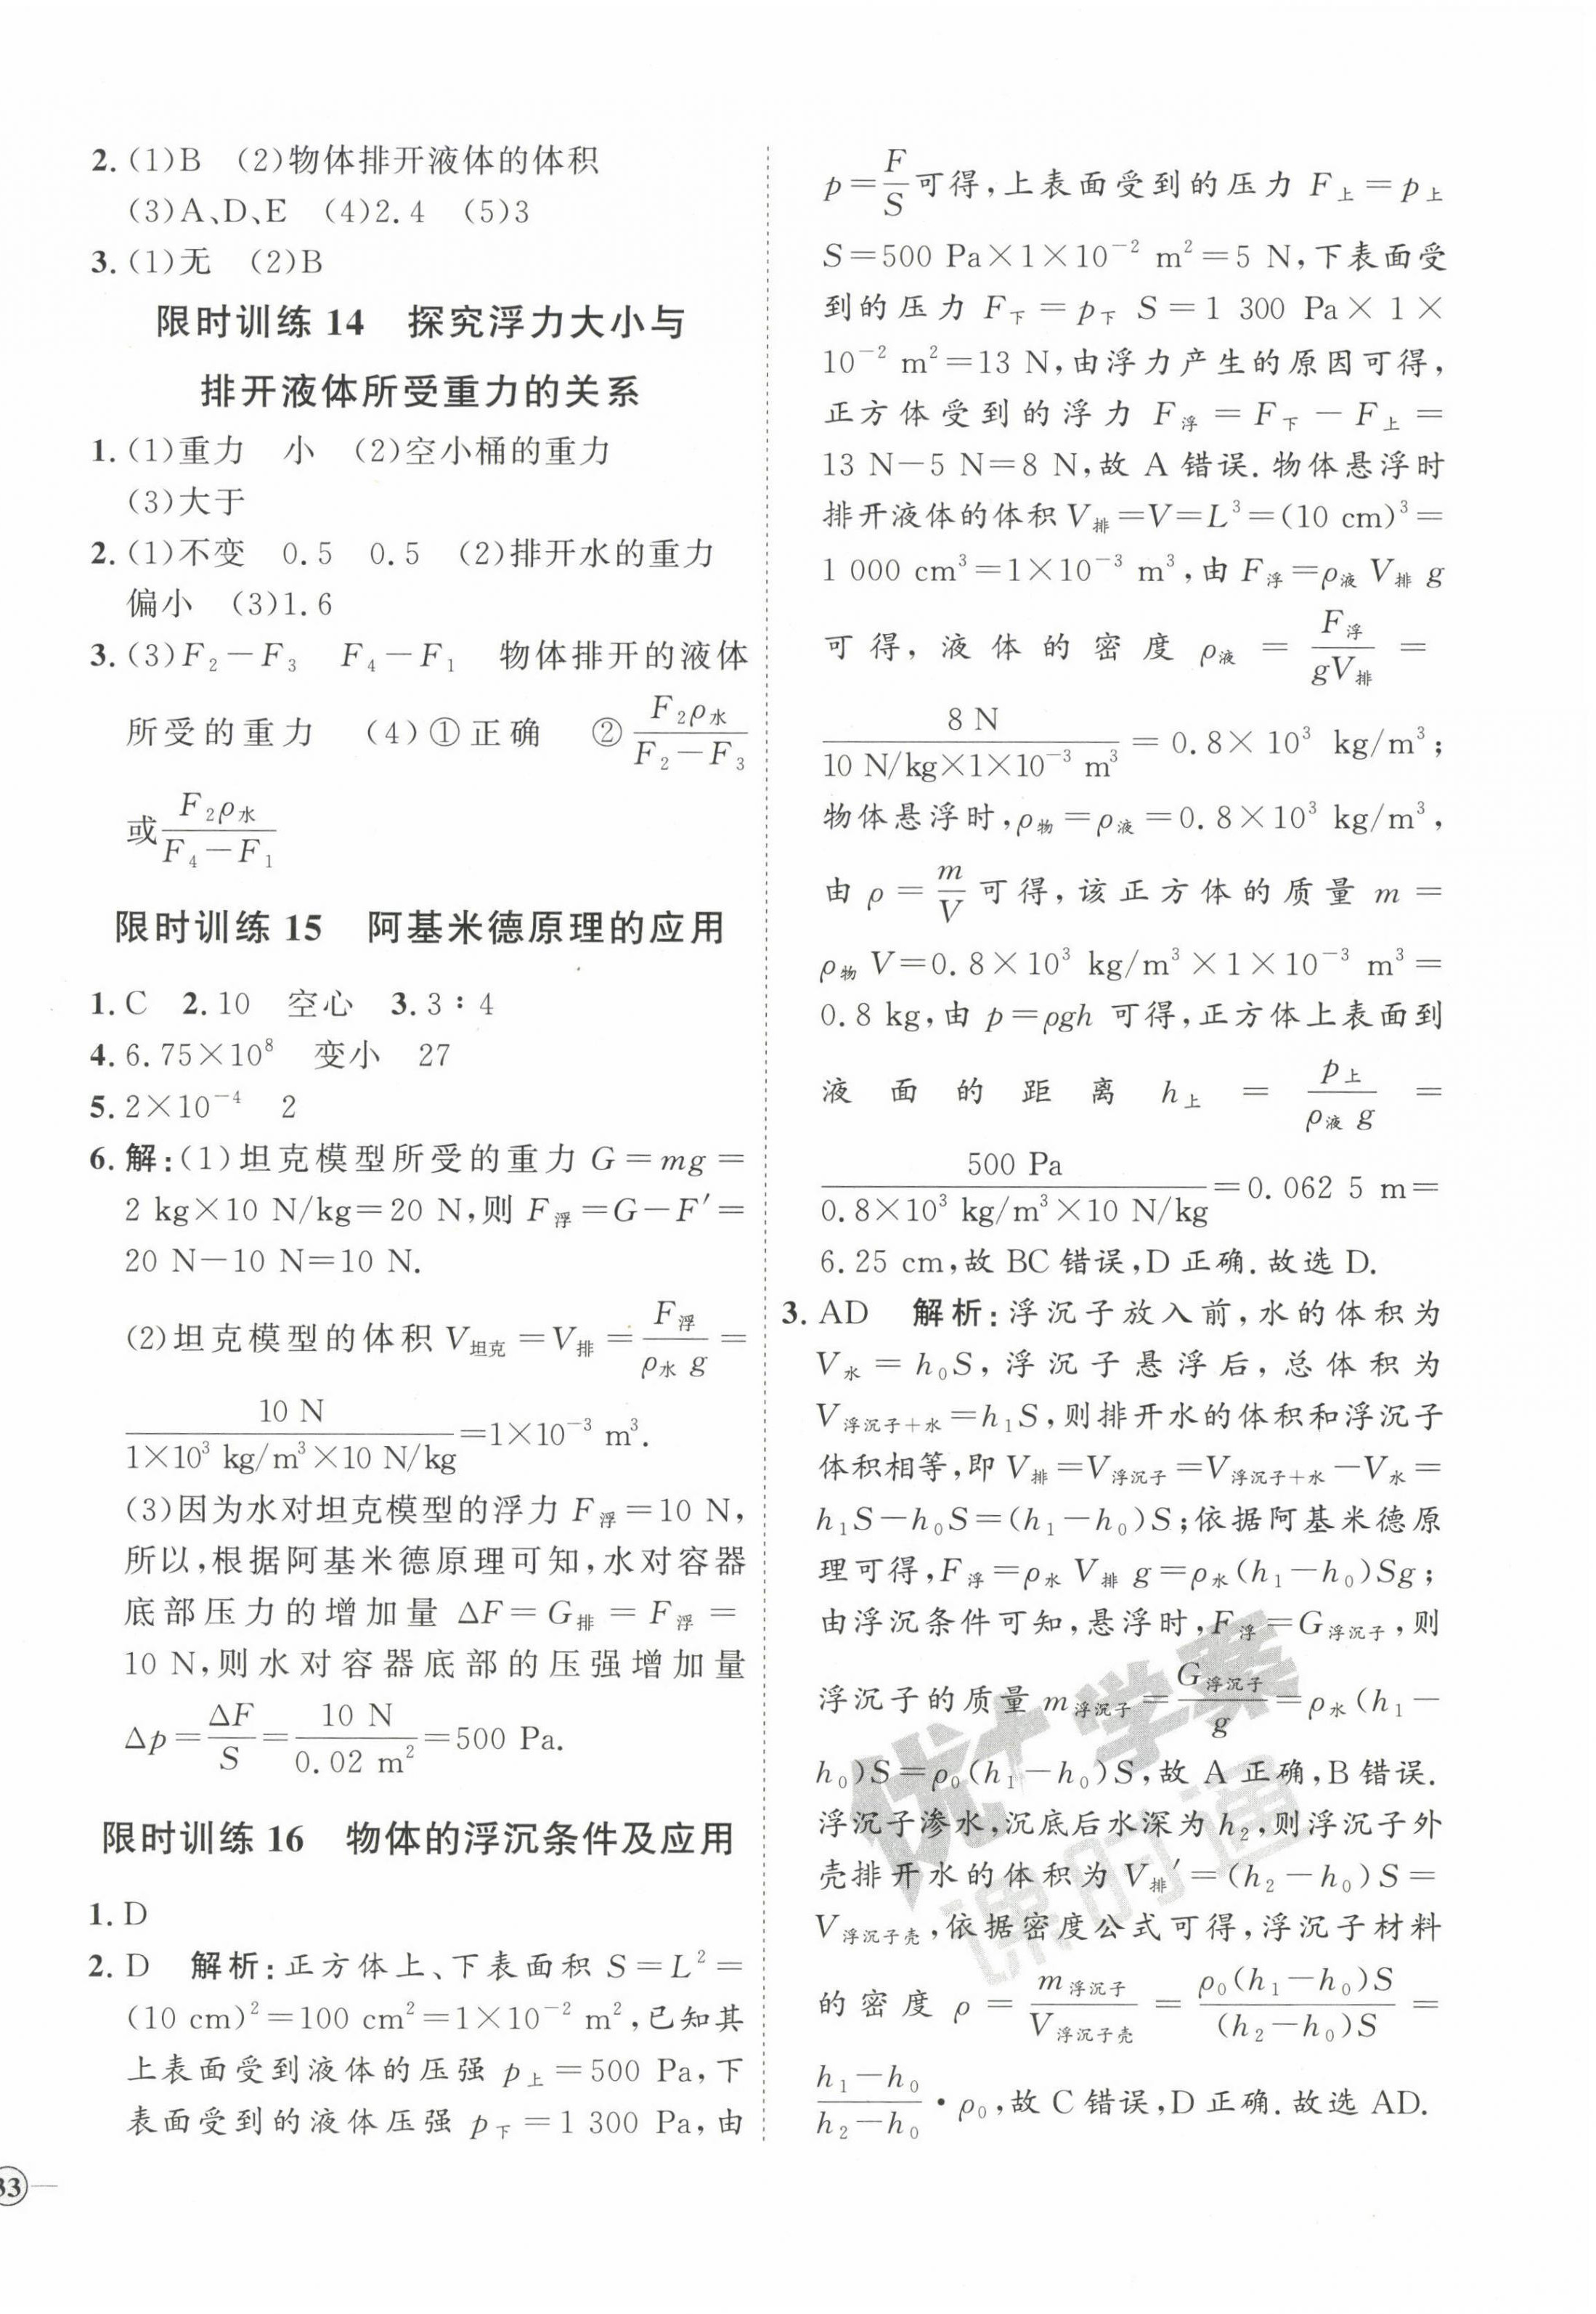 2. (1)B (2)物体排开液体的体积
(3)A、D、E (4)2.4 (5)3
3. (1)无 (2)B
限时训练 14 探究浮力大小与
排开液体所受重力的关系
1. (1)重力 小 (2)空小桶的重力
(3)大于
2. (1)不变 0.5 0.5 (2)排开水的重力
偏小 (3)1.6
3. (3)F₂－F₃ F₄－F₁ 物体排开的液体
所受的重力 (4)①正确 ②F₂ρ水/(F₂－F₃)
或F₂ρ水/(F₄－F₁)
限时训练 15 阿基米德原理的应用
1. C 2. 10 空心 3. 3∶4
4. 6.75×10⁸ 变小 27
5. 2×10⁻⁴ 2
6. 解:(1)坦克模型所受的重力 G＝mg＝
2 kg×10 N/kg＝20 N,则 F浮＝G－F′＝
20 N－10 N＝10 N.
(2)坦克模型的体积 V坦克＝V排＝F浮/(ρ水 g)＝
10 N/(1×10³ kg/m³×10 N/kg)＝1×10⁻³ m³.
(3)因为水对坦克模型的浮力 F浮＝10 N,
所以,根据阿基米德原理可知,水对容器
底部压力的增加量 ΔF＝G排＝F浮＝
10 N,则水对容器底部的压强增加量
Δp＝ΔF/S＝10 N/0.02 m²＝500 Pa.
限时训练 16 物体的浮沉条件及应用
1. D
2. D 解析:正方体上、下表面积 S＝L²＝
(10 cm)²＝100 cm²＝1×10⁻² m²,已知其
上表面受到液体的压强 p上＝500 Pa,下
表面受到的液体压强 p下＝1 300 Pa,由
33
p＝F/S可得,上表面受到的压力 F上＝p上
S＝500 Pa×1×10⁻² m²＝5 N,下表面受
到的压力 F下＝p下 S＝1 300 Pa×1×
10⁻² m²＝13 N,由浮力产生的原因可得,
正方体受到的浮力 F浮＝F下－F上＝
13 N－5 N＝8 N,故 A 错误.物体悬浮时
排开液体的体积 V排＝V＝L³＝(10 cm)³＝
1 000 cm³＝1×10⁻³ m³,由 F浮＝ρ液 V排 g
可得,液体的密度 ρ液＝F浮/(gV排)＝
8 N/(10 N/kg×1×10⁻³ m³)＝0.8×10³ kg/m³;
物体悬浮时,ρ物＝ρ液＝0.8×10³ kg/m³,
由 ρ＝m/V 可得,该正方体的质量 m＝
ρ物 V＝0.8×10³ kg/m³×1×10⁻³ m³＝
0.8 kg,由 p＝ρgh 可得,正方体上表面到
液面的距离 h上＝p上/(ρ液 g)＝
500 Pa/(0.8×10³ kg/m³×10 N/kg)＝0.062 5 m＝
6.25 cm,故 BC 错误,D 正确.故选 D.
3. AD 解析:浮沉子放入前,水的体积为
V水＝h₀S,浮沉子悬浮后,总体积为
V浮沉子＋水＝h₁S,则排开水的体积和浮沉子
体积相等,即 V排＝V浮沉子＝V浮沉子＋水－V水＝
h₁S－h₀S＝(h₁－h₀)S;依据阿基米德原
理可得,F浮＝ρ水 V排 g＝ρ水(h₁－h₀)Sg;
由浮沉条件可知,悬浮时,F浮＝G浮沉子,则
浮沉子的质量 m浮沉子＝G浮沉子/g＝ρ水(h₁－
h₀)S＝ρ₀(h₁－h₀)S,故 A 正确,B 错误.
浮沉子渗水,沉底后水深为 h₂,则浮沉子外
壳排开水的体积为 V排′＝(h₂－h₀)S＝
V浮沉子壳,依据密度公式可得,浮沉子材料
的密度 ρ＝m浮沉子/V浮沉子壳＝ρ₀(h₁－h₀)S/((h₂－h₀)S)＝
(h₁－h₀)/(h₂－h₀)·ρ₀,故 C 错误,D 正确.故选 AD.
优+学案
课时通